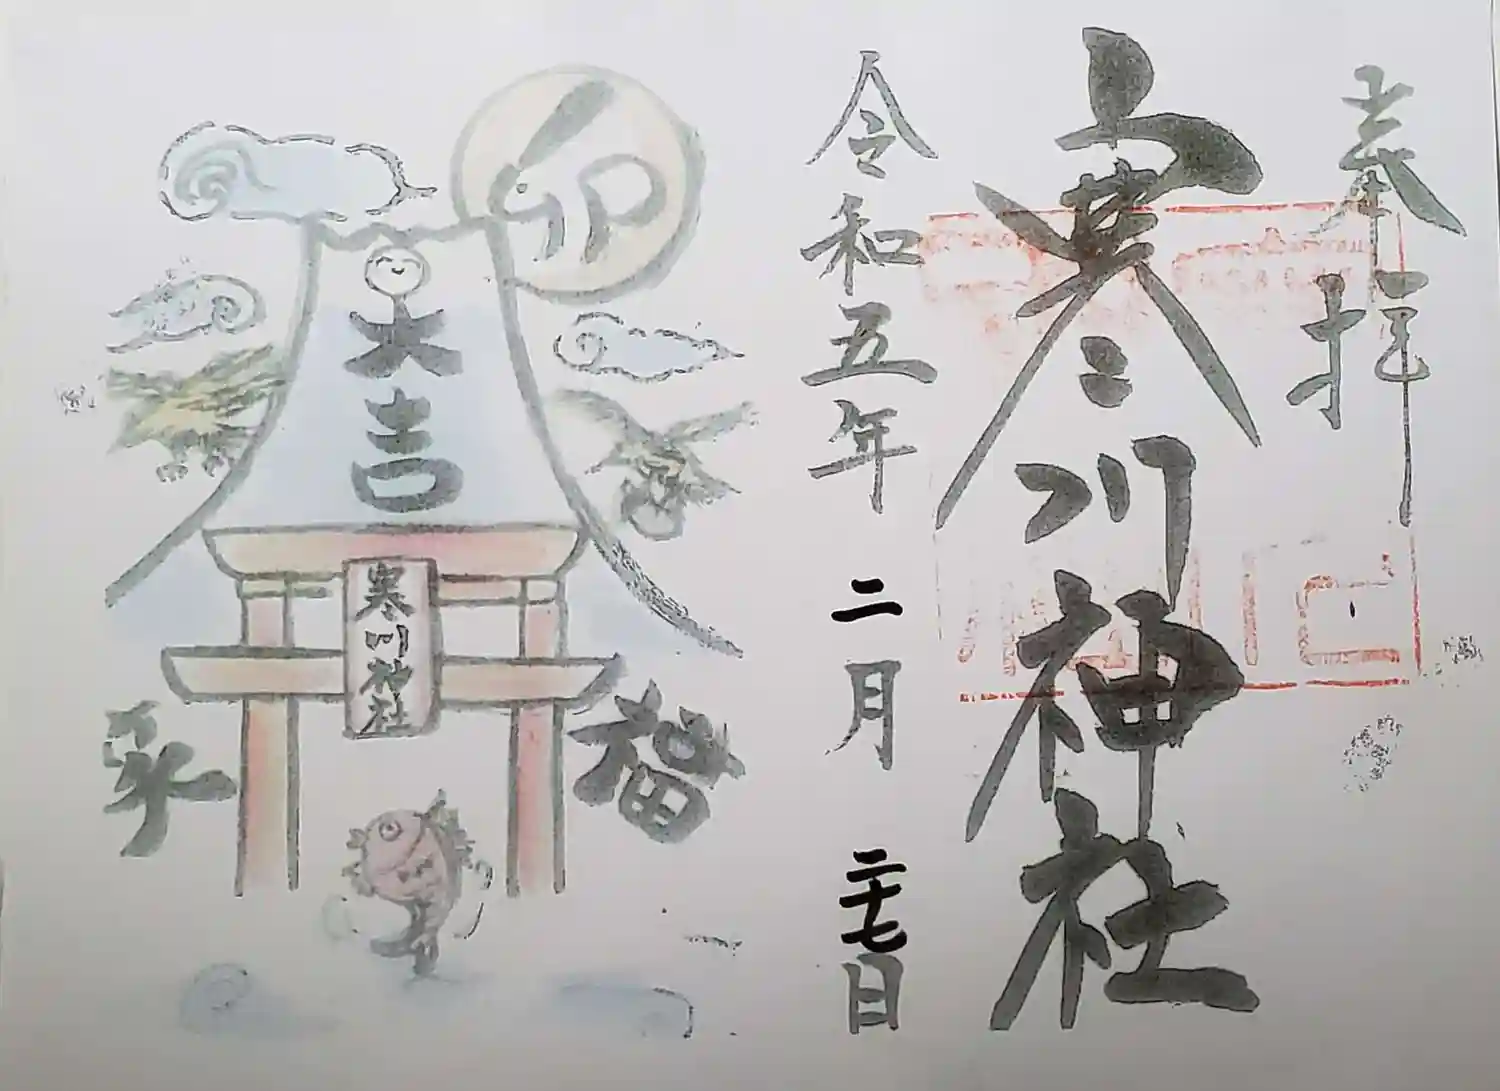 奉拝
寒川神社
令和五年 二月 二十七日
卯
大吉
寒川神社
福